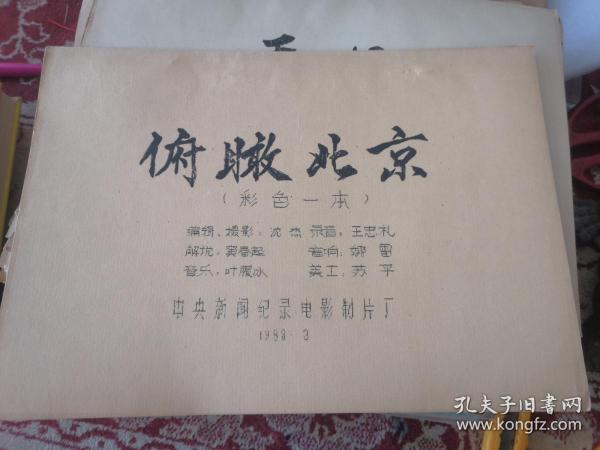 俯瞰北京
(彩色一本)
编辑、摄影：沈杰 录音：王忠礼
解说：窦春起 音响：娜雷
音乐：叶履冰 美工：苏平
中央新闻纪录电影制片厂
1988·3
孔夫子旧书网
www.kongfz.com